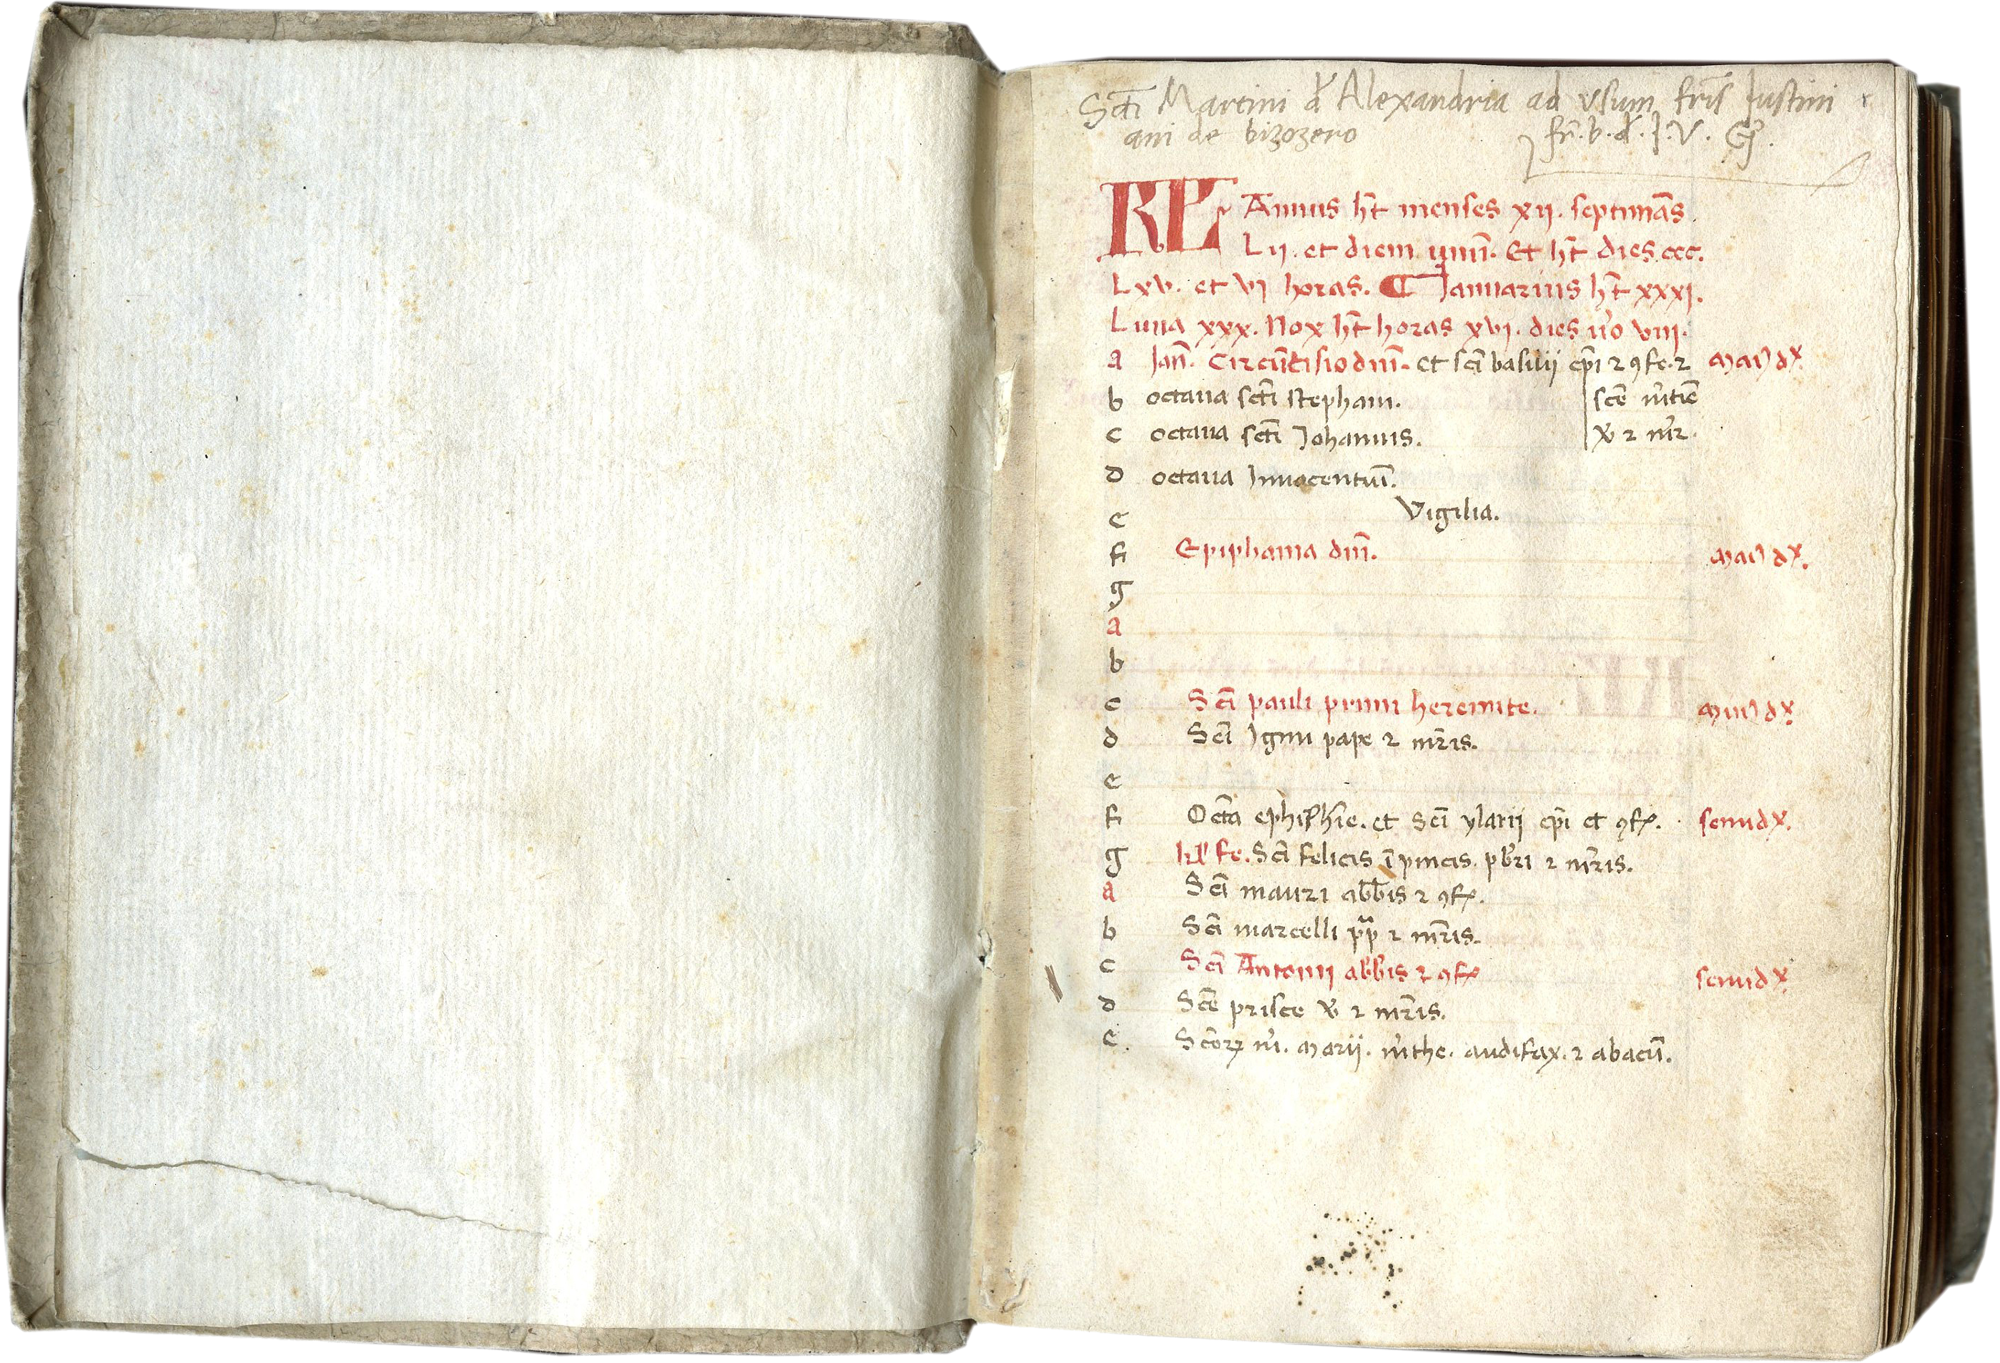 Sc̄ti Martini d̄ Alexandria ad vsum fr̄is Iustini
ani de bizozero
fr̄. b. d. I. V.
KL Annus ht̄ menses xij. septimās.
Lij. et diem unū. Et ht̄ dies ccc.
Lxv. et vj horas. ¶ Ianuarius ht̄ xxxj.
Luna xxx. Nox ht̄ horas xvj. dies u̾o viij.
a Ian̄. Circūcisio dn̄i. et scī basilij ep̄i ⁊ ꝯfe. ⁊ mai⁹ dx̾.
b octaua scti stephani. scē m̾tīe
c octaua scti Iohannis. v̾ ⁊ m̾r̄.
d octaua Innocentuū.
e Vigilia.
f Epiphania dn̄i. mai⁹ dx̾.
g
a
b
c Scī pauli primi heremite. min⁹ dx̾.
d Scī Iginii pape ⁊ mr̄is.
e
f Octa ephip̄hīe. et scī ylarij ep̄i et ꝯf̾. semidx̾.
g kl̄ fe. Scī felicis ī pincis. pb̄ri ⁊ mr̄is.
a Scī mauri abb̄is ⁊ ꝯf̾.
b Scī marcelli pp̄ ⁊ mr̄is.
c Scī Antonij abb̄is ⁊ ꝯf̾ semidx̾.
d Scē prisce v̾ ⁊ mr̄is.
e. Scōrꝝ m̾. marij. m̾the. audifax. ⁊ abacū.